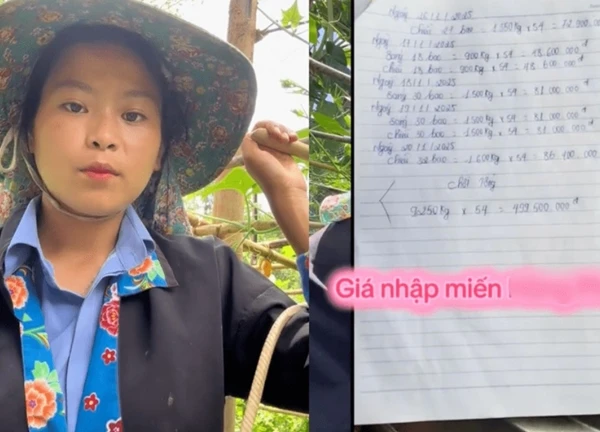 Ngày 11.2025
Chiều bao = 1350Kg x 54 = 72.900.000đ
Ngày 17.11.2025
Sáng 18 bao = 900Kg x 54 = 48.600.000đ
Chiều 18 bao = 900Kg x 54 = 48.600.000đ
Ngày 18.11.2025
Sáng 30 bao = 1500Kg x 54 = 81.000.000đ
Ngày 19.11.2025
Sáng 30 bao = 1500Kg x 54 = 81.000.000đ
Chiều 30 bao = 1500Kg x 54 = 81.000.000đ
Ngày 20.11.2025
Chiều 32 bao = 1600Kg x 54 = 86.400.000đ
Chốt tổng
9250Kg x 54 = 499.500.000đ
Giá nhập miến